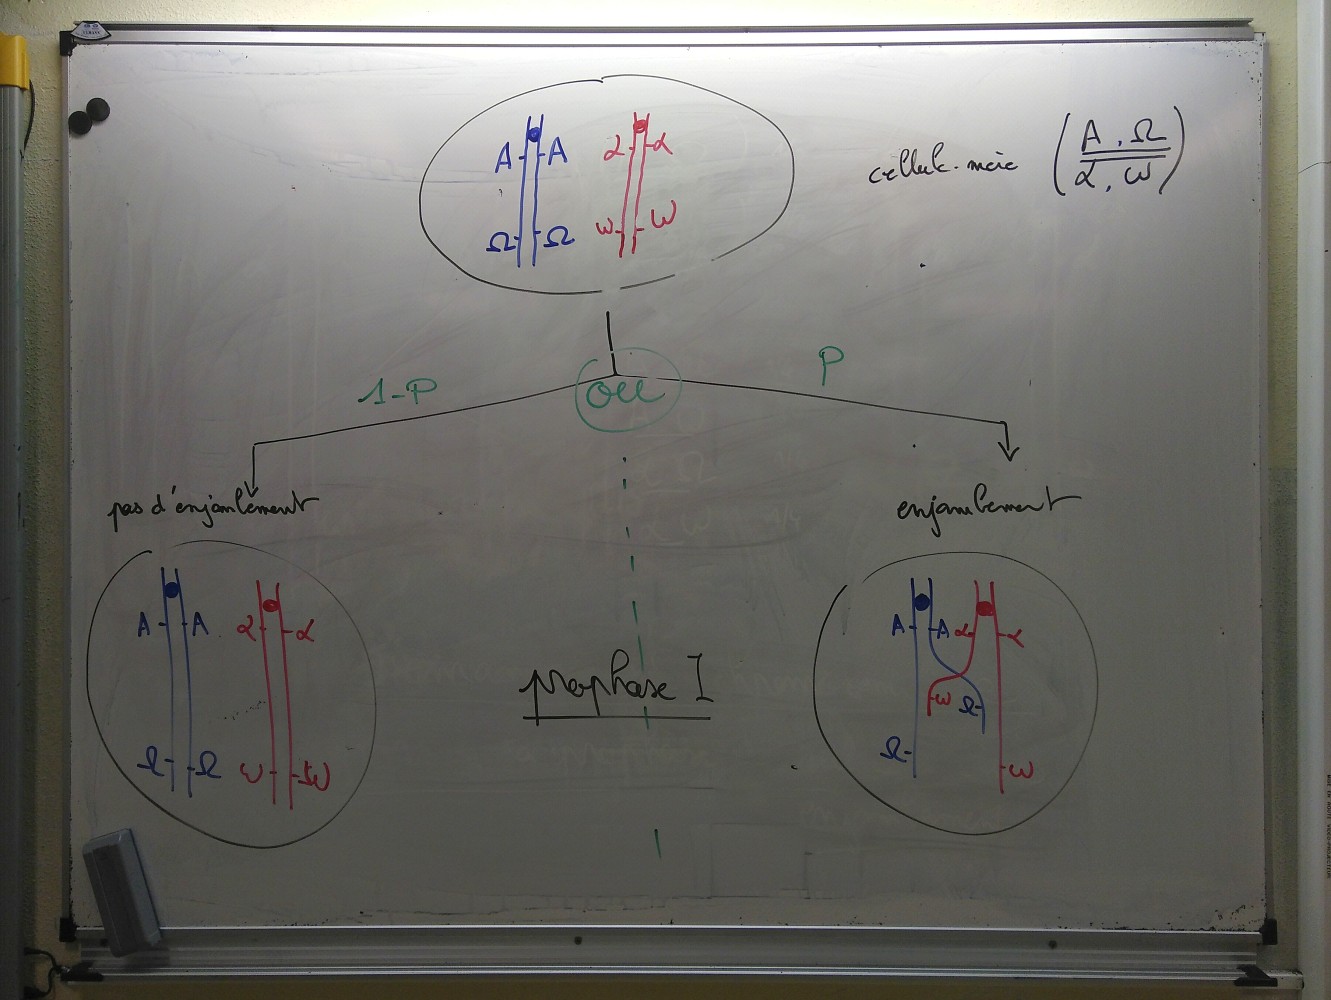 A A α α
Ω Ω ω ω
cellule-mère (A, Ω / α, ω)
1-P
ou
P
pas d'enjambement
enjambement
A A α α
Ω Ω ω ω
prophase I
A A α α
ω Ω
Ω ω